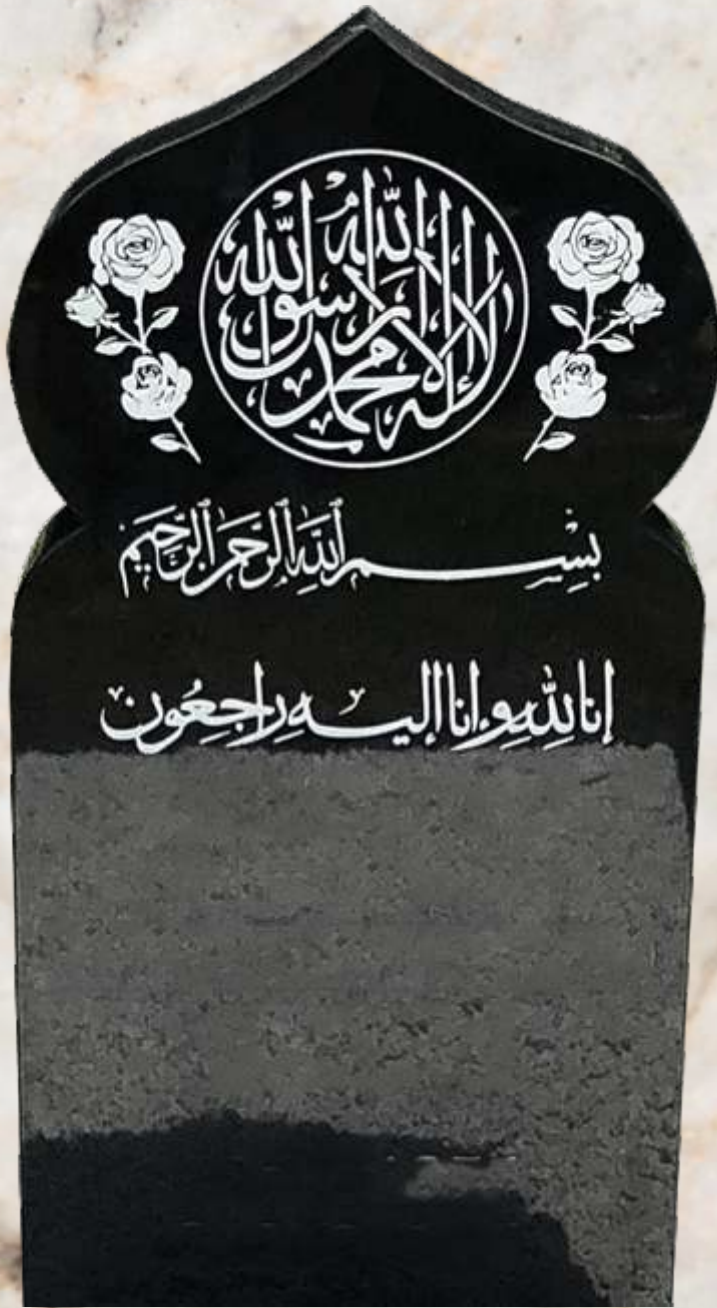 لا إله إلا الله محمد رسول الله
بِسْمِ اللهِ الرَّحْمَنِ الرَّحِيمِ
إنا لِلّٰهِ وإنا إليه راجِعُون